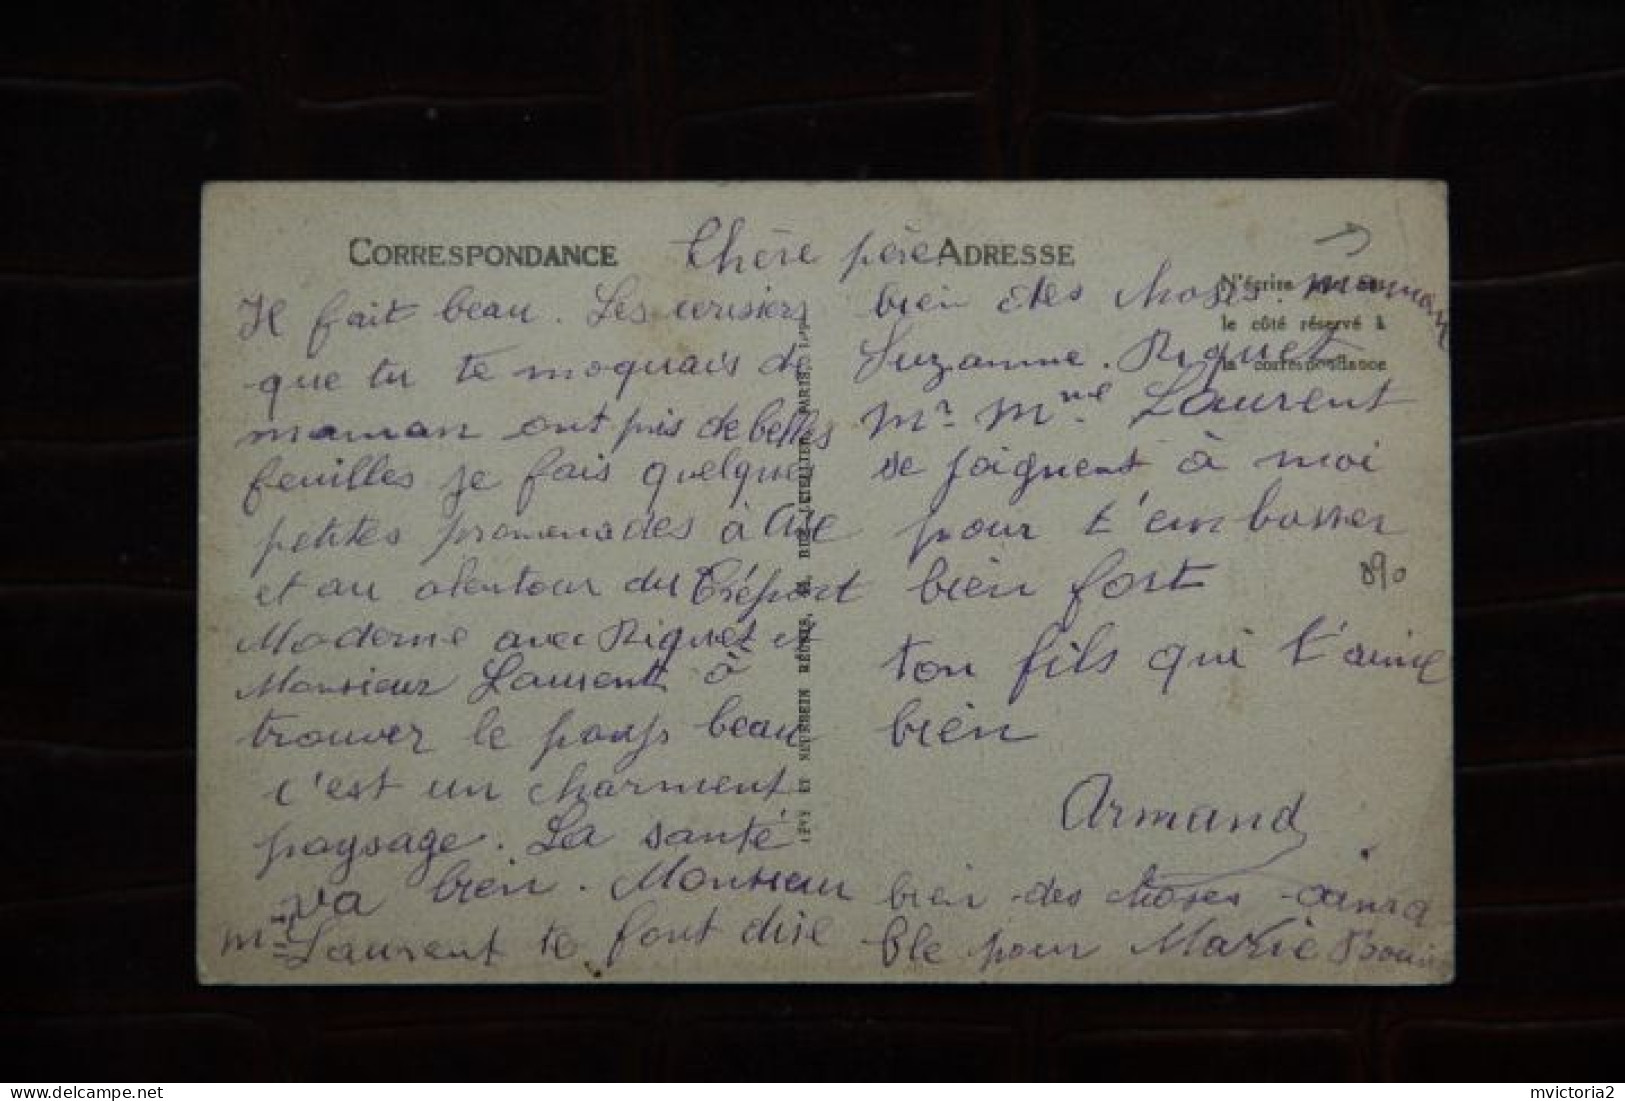 CORRESPONDANCE
Chère père
ADRESSE
Il fait beau. Les cerisiers
que tu te moquais de
maman ont pris de belles
feuilles je fais quelques
petites promenades à
et au alentour du Tréport
Moderne avec Riquet et
Monsieur Laurent à
trouver le pays beau
c'est un charment
paysage. La santé
va bien. Monsieur
Laurent te font dire
bien des choses. maman
Suzanne. Riquet
Mr. Mme. Laurent
se joignent à moi
pour t'embasser
bien fort
ton fils qui t'aime
bien
Armand
bien des choses
ble pour Marie
N'écrire
le côté réservé à
la correspondance
LÉVY ET NEURDEIN RÉUNIS, 44, RUE LETELLIER, PARIS
890
mvictoria2